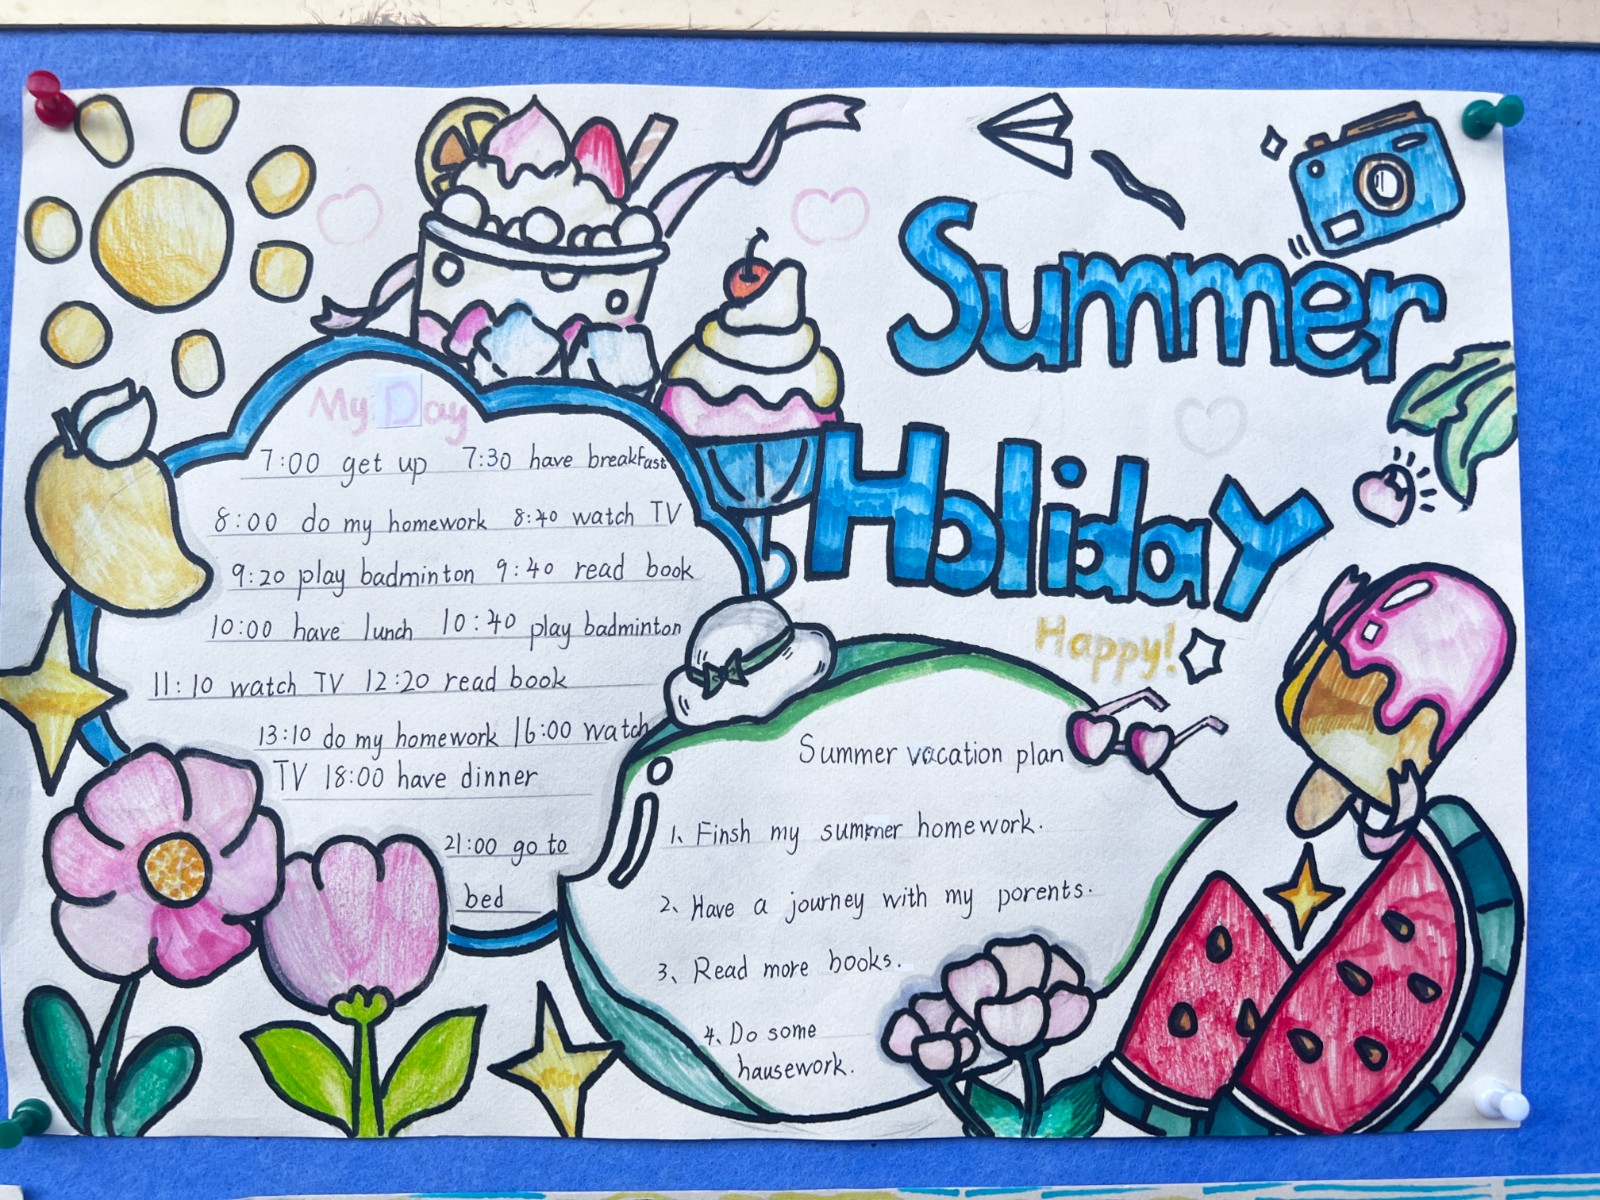 Summer
Holiday
Happy!
My Day
7:00 get up 7:30 have breakfast
8:00 do my homework 8:40 watch TV
9:20 play badminton 9:40 read book
10:00 have lunch 10:40 play badminton
11:10 watch TV 12:20 read book
13:10 do my homework 16:00 watch
TV 18:00 have dinner
21:00 go to
bed
Summer vacation plan
1、Finsh my summer homework.
2、Have a journey with my porents.
3、Read more books.
4、Do some
hausework.